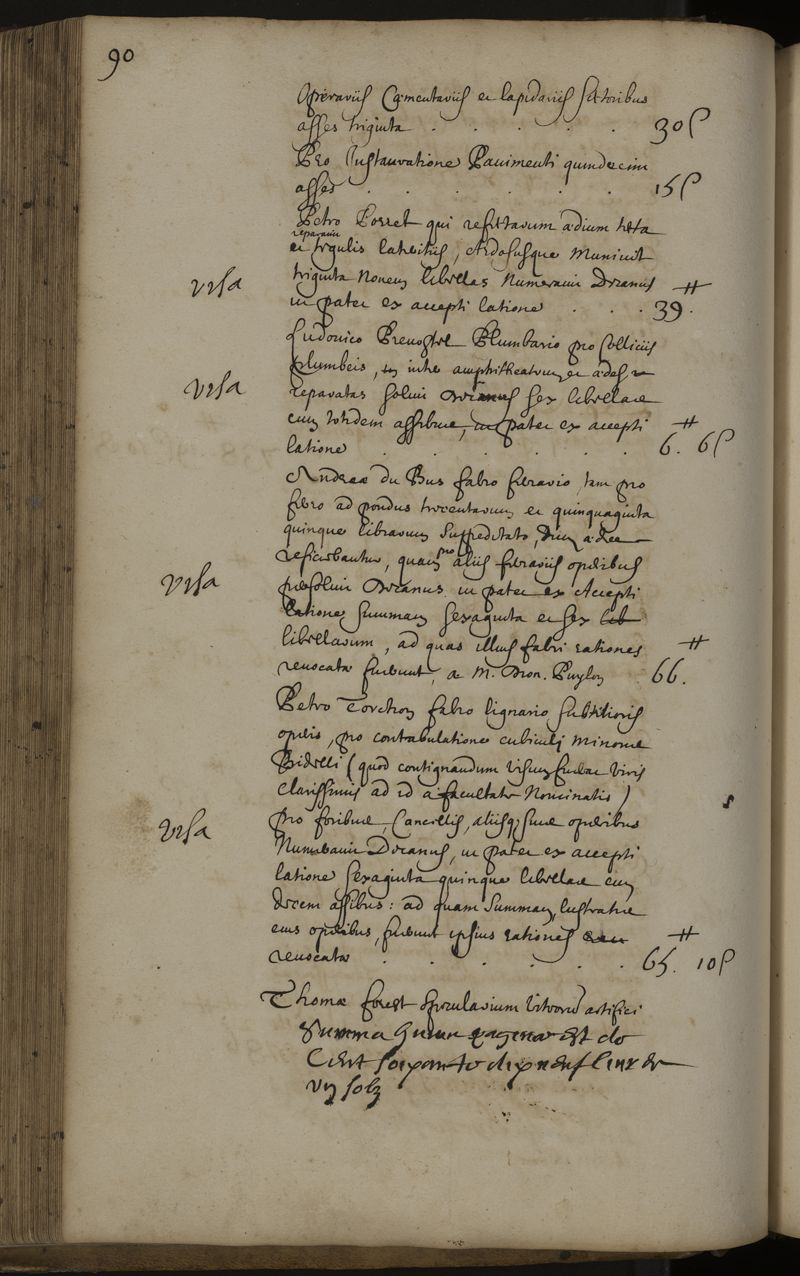 90
Operariis Cæmentariis et lapidariis sectoribus
asses triginta . . . . . 30 s
Pro Instauratione Pavimenti quindecim
asses . . . . . . 15 s
Petro Porret qui refectarum ædium tecta
reparavit
et tegulis lateritiis, Ardosiisque Munivit
visa
triginta Novem libellas Numeravit Decanus ⧺
in pater ex accepti latione . . . 39.
Ludovico Prevostel Plumbario pro Colliciis
plumbeis, in inter amphitheatrum et ædes
visa
reparatas solvit Decanus sex libellas
cum totidem assibus, in pater ex accepti ⧺
latione . . . . . . 6. 6 s
Andreæ du Bus fabro ferrario, tam pro
ferro ad pondus trecentarum et quinquaginta
quinque librarum suppeditato, dum ædes
reficiebantur, quam pro aliis ferrariis operibus
visa
persolvit Decanus in pater ex Accepti
latione summam sexaginta et sex lib
libellarum, ad quas illius fabri rationes ⧺
revocatæ fuerunt, a M. Dion. Puylon . 66.
Petro Torchon fabro lignario subtilioris
operis, pro contabulatione cubiculi minoris
Bidelli (quod contignandum visum fuerat viris
Clarissimis ad id a facultate Nominatis)
visa
pro foribus, Cancellis, aliisque suis operibus
Numeravit Decanus, in pater ex accepti
latione sexaginta quinque libellas cum
decem assibus: ad quam summam, lustratis
eius operibus, fuerunt ipsius rationes ⧺
revocatæ . . . . . . 65. 10 s
Thomæ forest specularium vitreorum artifici
Summa huius paginæ est de
Cent soixante dixneuf livres
un solz